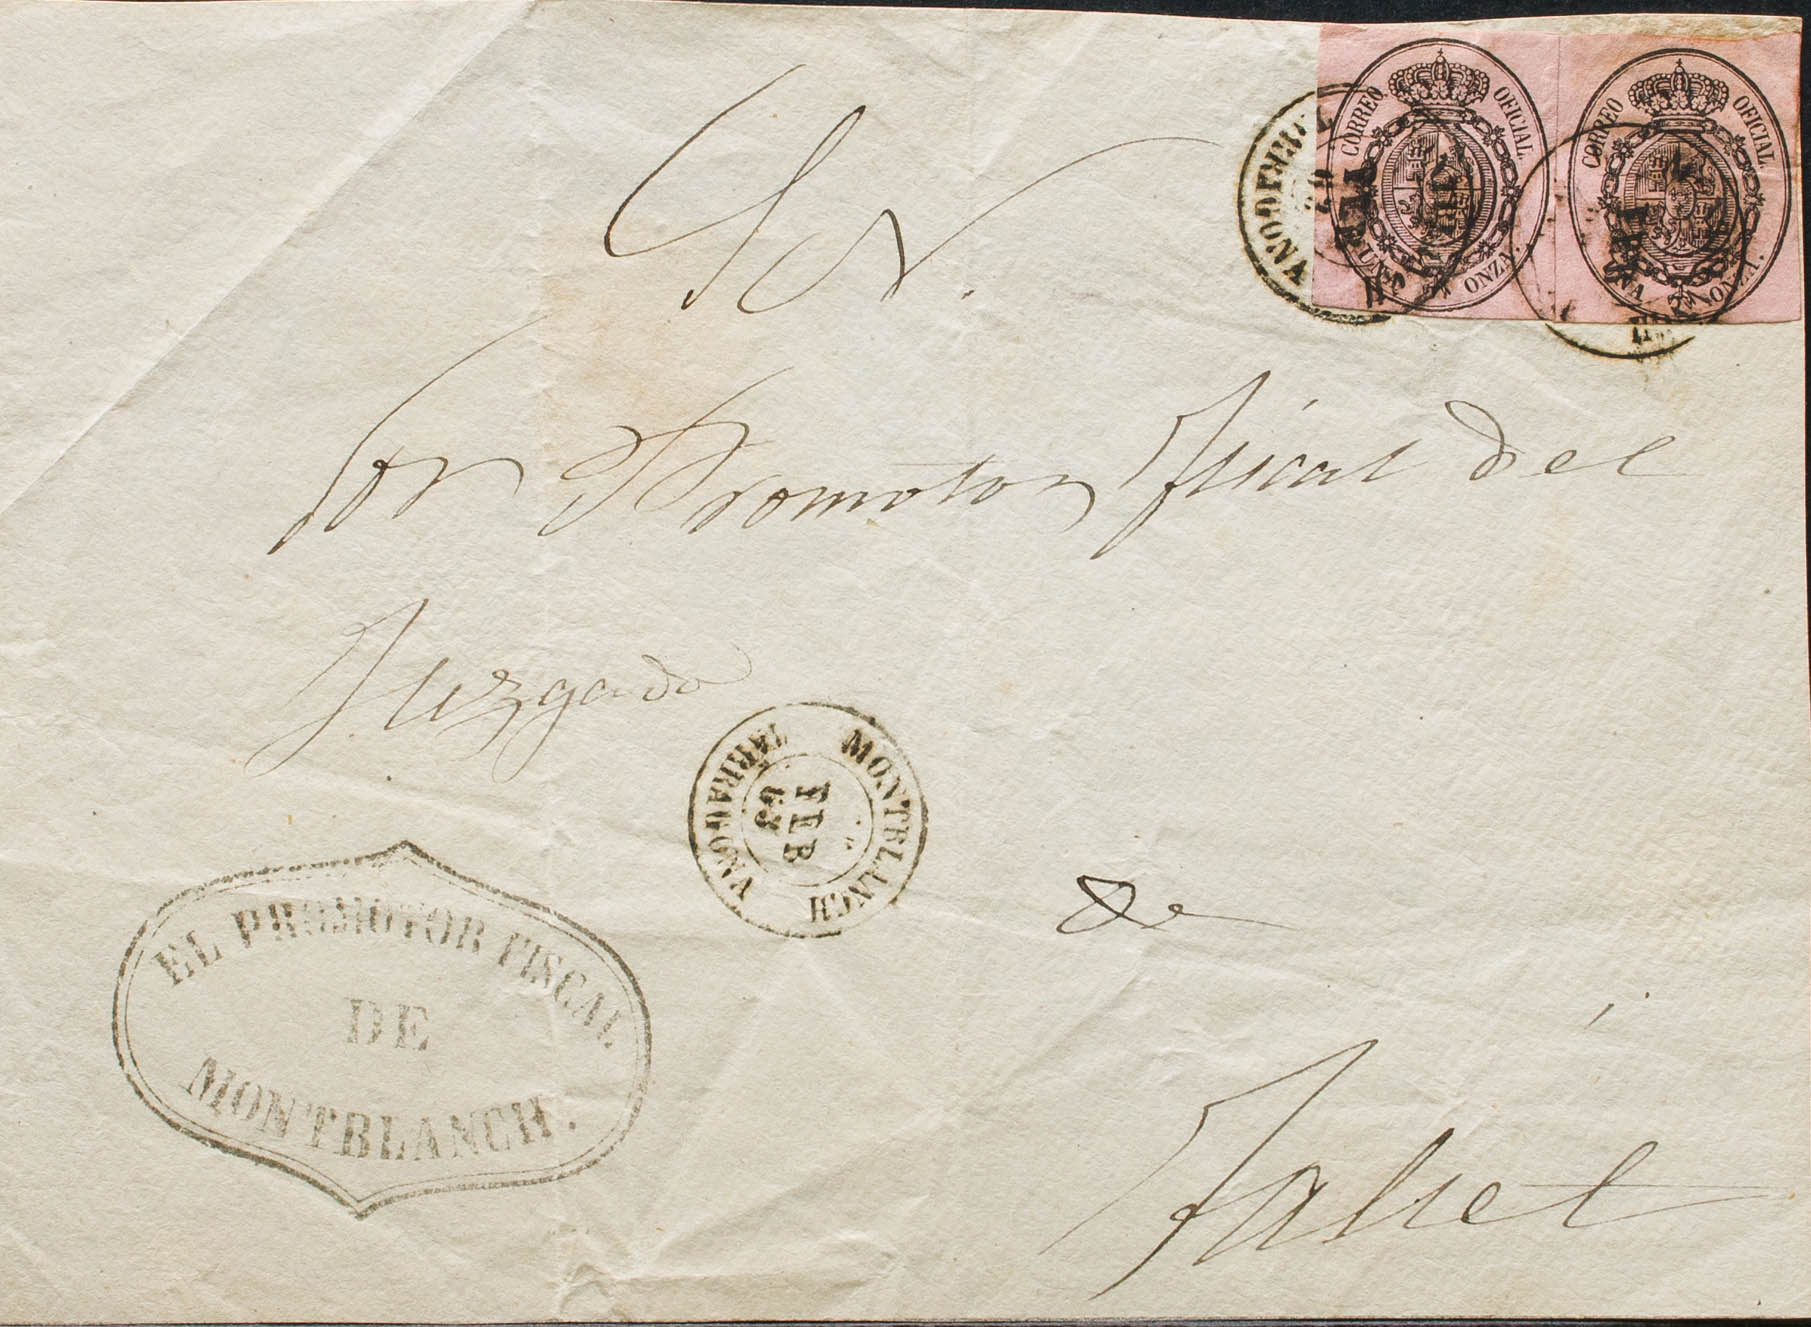 CORREO OFICIAL
ONZA.
CORREO OFICIAL
ONZA.
TARRAGONA
S. N.
Sor Promotor Fiscal del
Juzgado
MONTBLANCH
FEB
63
TARRAGONA
de
Falset
EL PROMOTOR FISCAL
DE
MONTBLANCH.